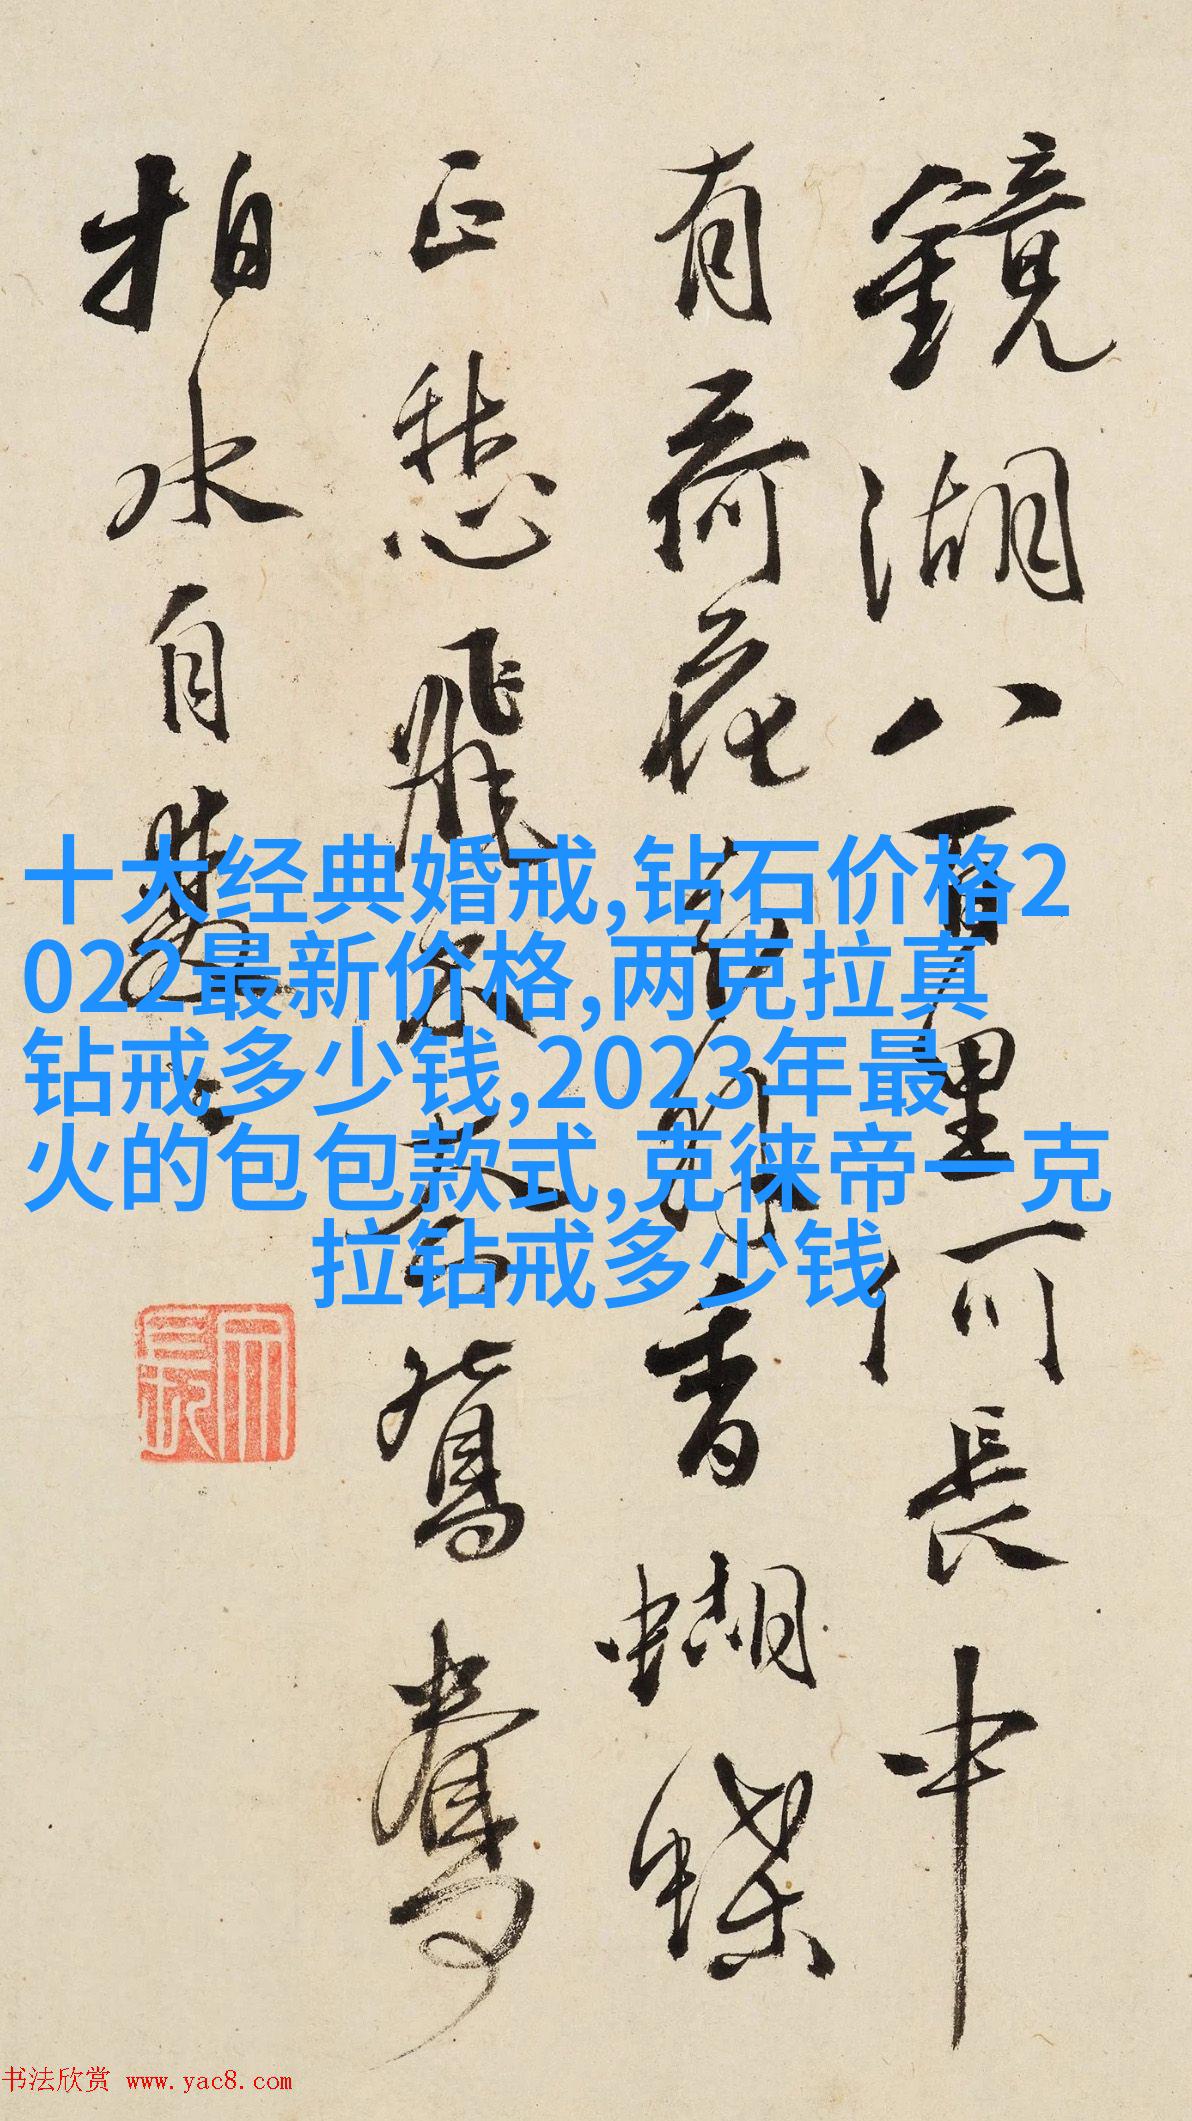 鏡湖八百里何長中
有荷花分外香蝴蝶
正愁飛不過鴛鴦
拍水自雙〻
十大经典婚戒,钻石价格2
022最新价格,两克拉真
钻戒多少钱,2023年最
火的包包款式,克徕帝一克
拉钻戒多少钱
书法欣赏 www.yac8.com